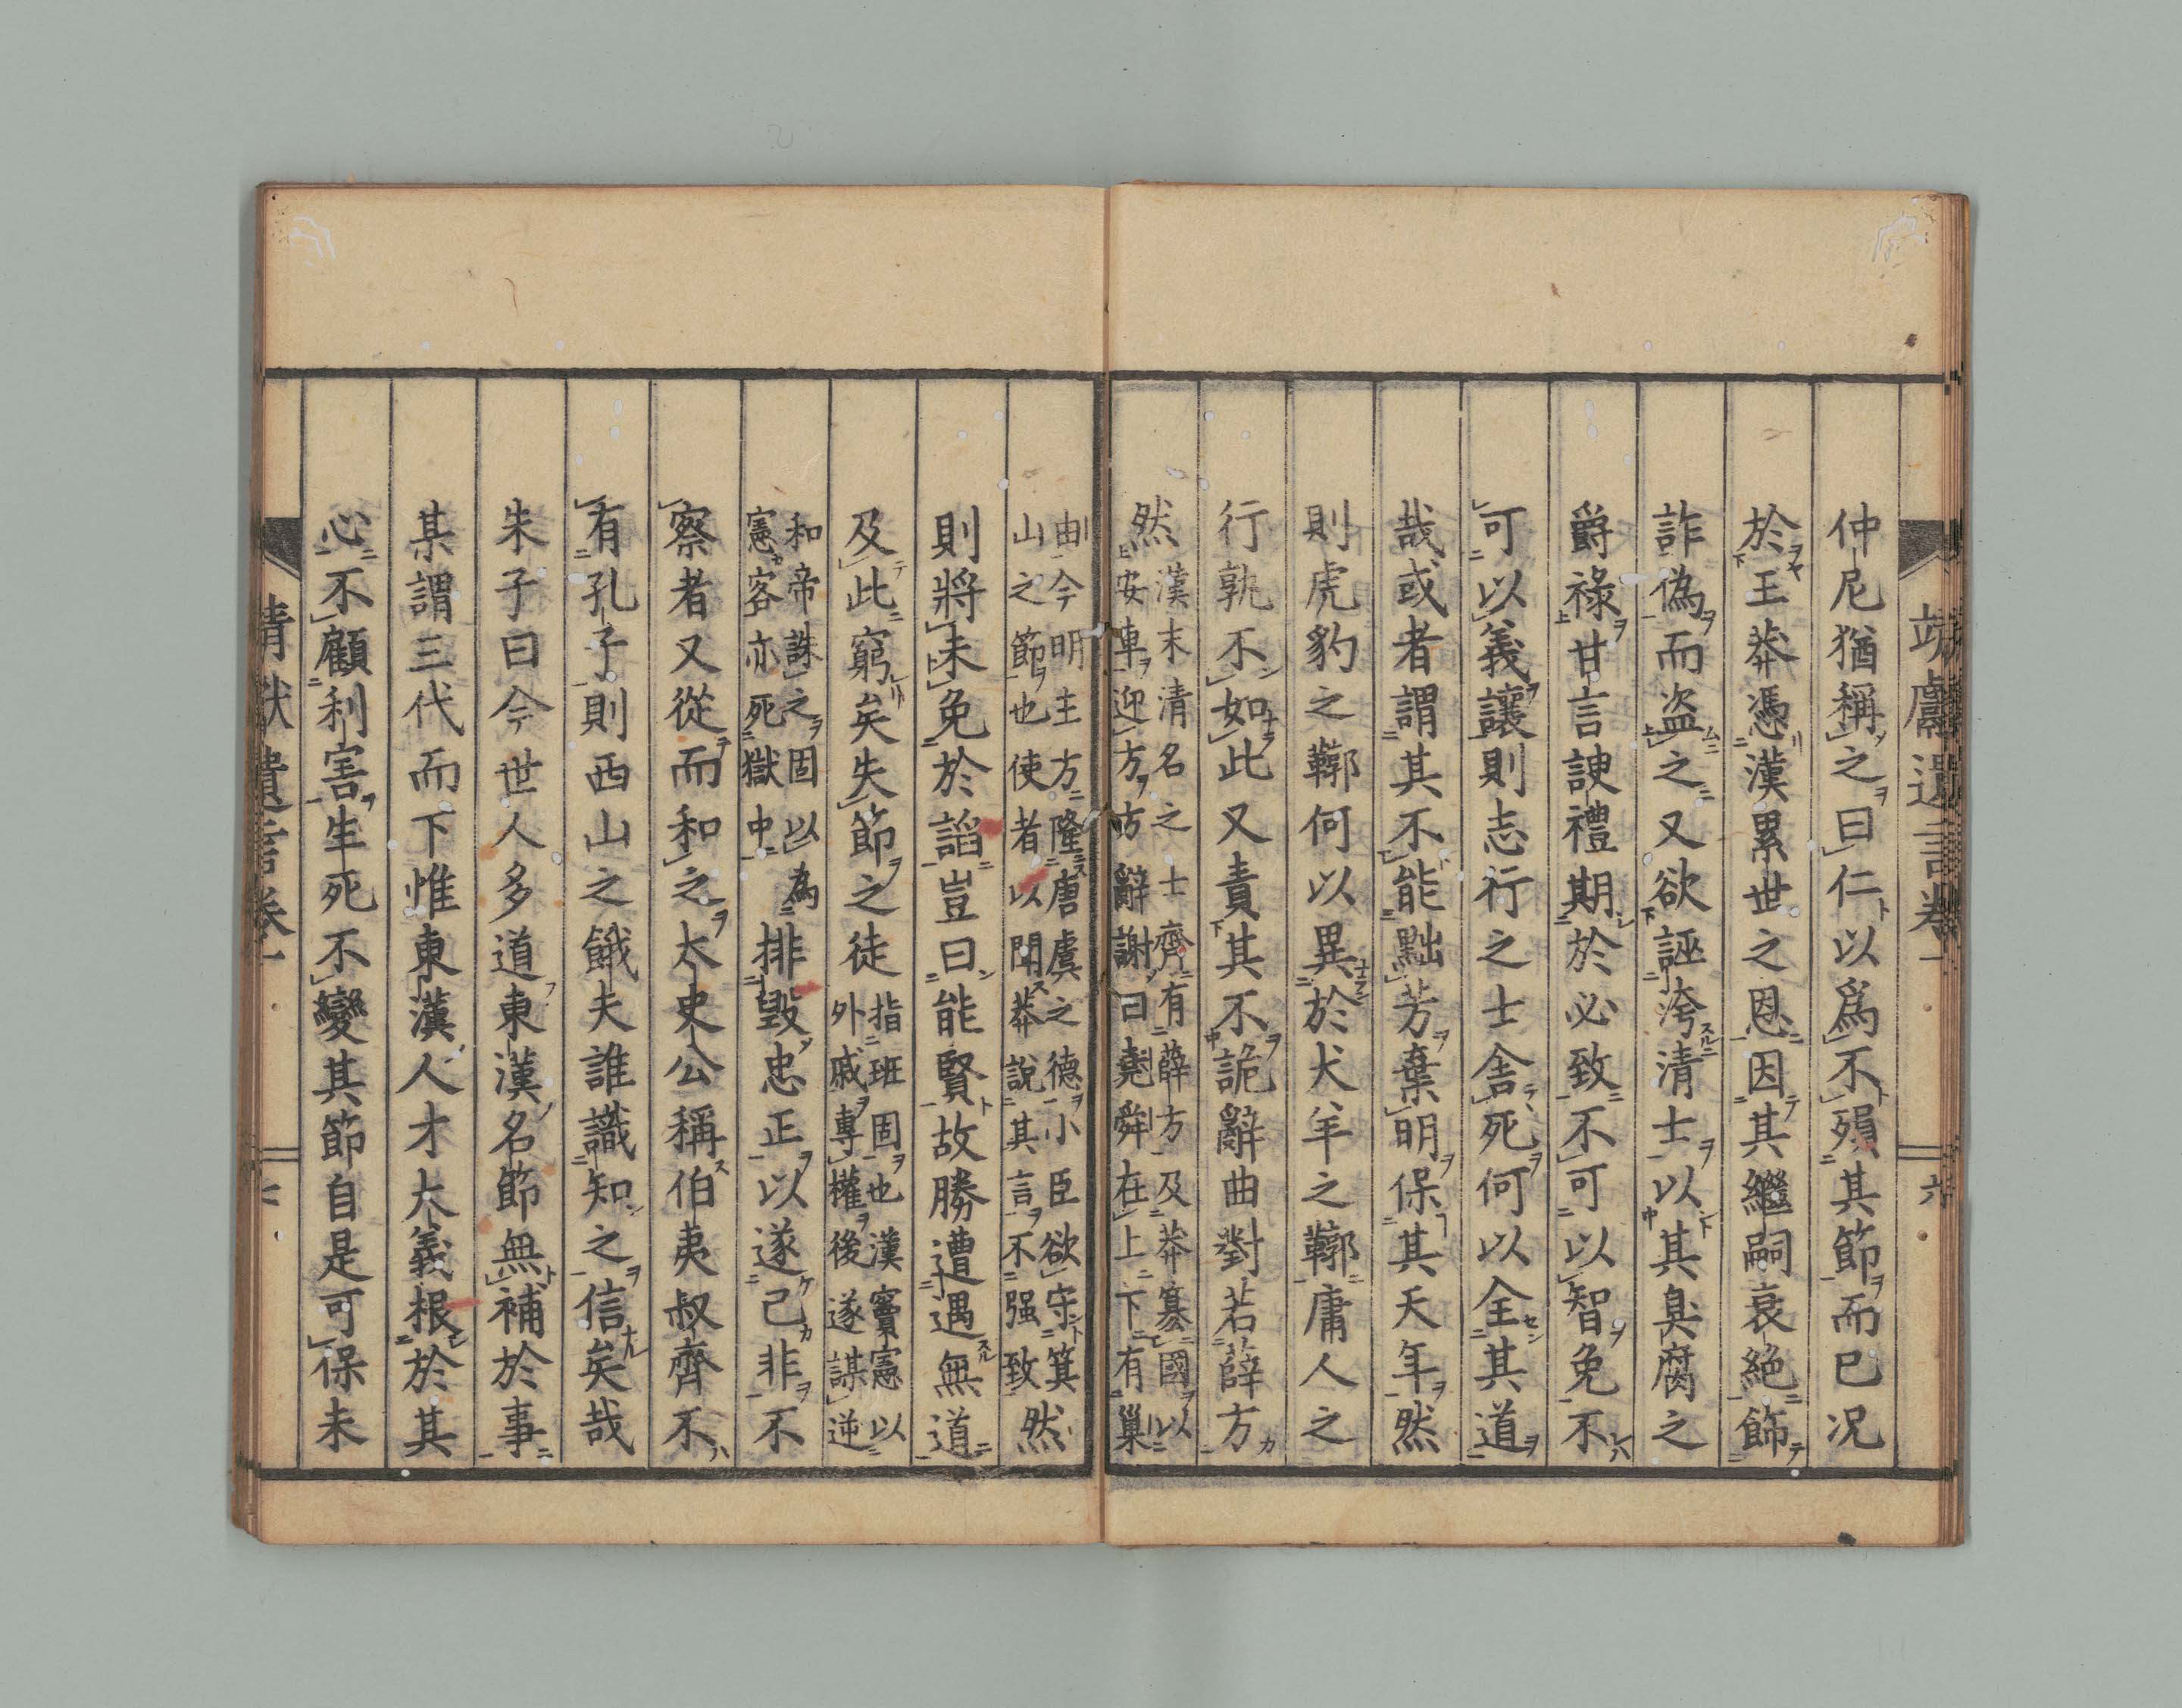 靖獻遺言卷一 六
仲尼猶稱之曰仁以爲不殞其節而已况
於王莽憑漢累世之恩因其繼嗣衰絶飾
詐偽而盗之又欲誣洿清士以其臭腐之
爵祿甘言諛禮期於必致不可以智免不
可以義讓則志行之士舎死何以全其道
哉或者謂其不能黜芳棄明保其天年然
則虎豹之鞹何以異於犬羊之鞹庸人之
行孰不如此又責其不詭辭曲對若薛方
然
漢末清名之士齊有薛方及莽簒國以
安車迎方方辭謝曰堯舜在上下有巢
由今明主方隆唐虞之德小臣欲守箕
山之節也使者以聞莽説其言不强致
然
則將未免於謟豈曰能賢故勝遭遇無道
及此窮矣失節之徒
指班固也漢竇憲以
外戚專權後遂謀逆
和帝誅之固以為
憲客亦死獄中
排毀忠正以遂己非不
察者又從而和之太史公稱伯夷叔齊不
有孔子則西山之餓夫誰識知之信矣哉
朱子曰今世人多道東漢名節無補於事
某謂三代而下惟東漢人才大義根於其
心不顧利害生死不變其節自是可保未
靖獻遺言卷一